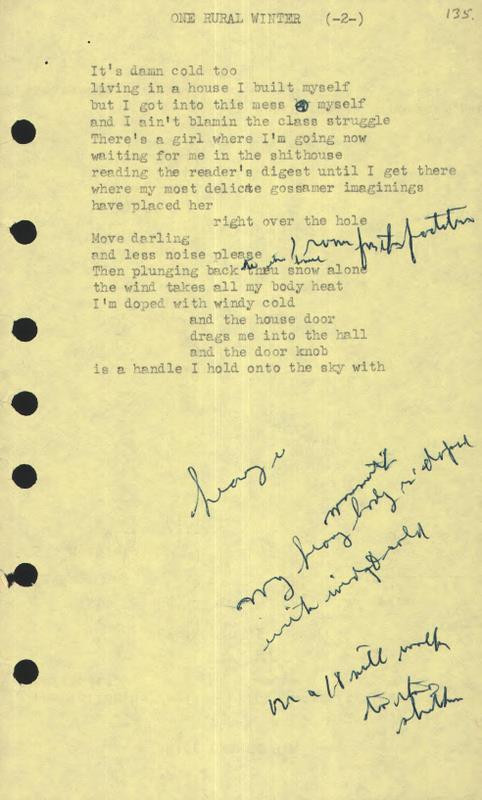 ONE RURAL WINTER (-2-)
135.
It's damn cold too
living in a house I built myself
but I got into this mess by myself
and I ain't blamin the class struggle
There's a girl where I'm going now
waiting for me in the shithouse
reading the reader's digest until I get there
where my most delicate gossamer imaginings
have placed her
right over the hole
Move darling
and less noise please
Then plunging back thru snow alone
the wind takes all my body heat
I'm doped with windy cold
and the house door
drags me into the hall
and the door knob
is a handle I hold onto the sky with
My heavy body is doped
with windy cold
on a
walk